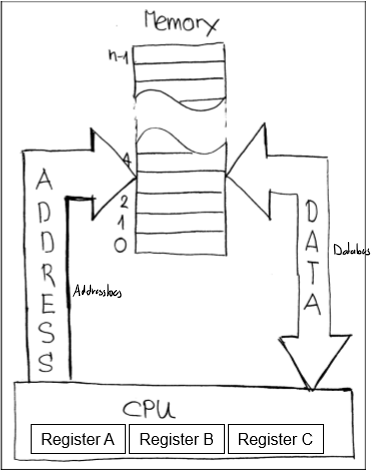 Memory
n-1
4
2
1
0
ADDRESS
Addressbus
DATA
Databus
CPU
Register A
Register B
Register C